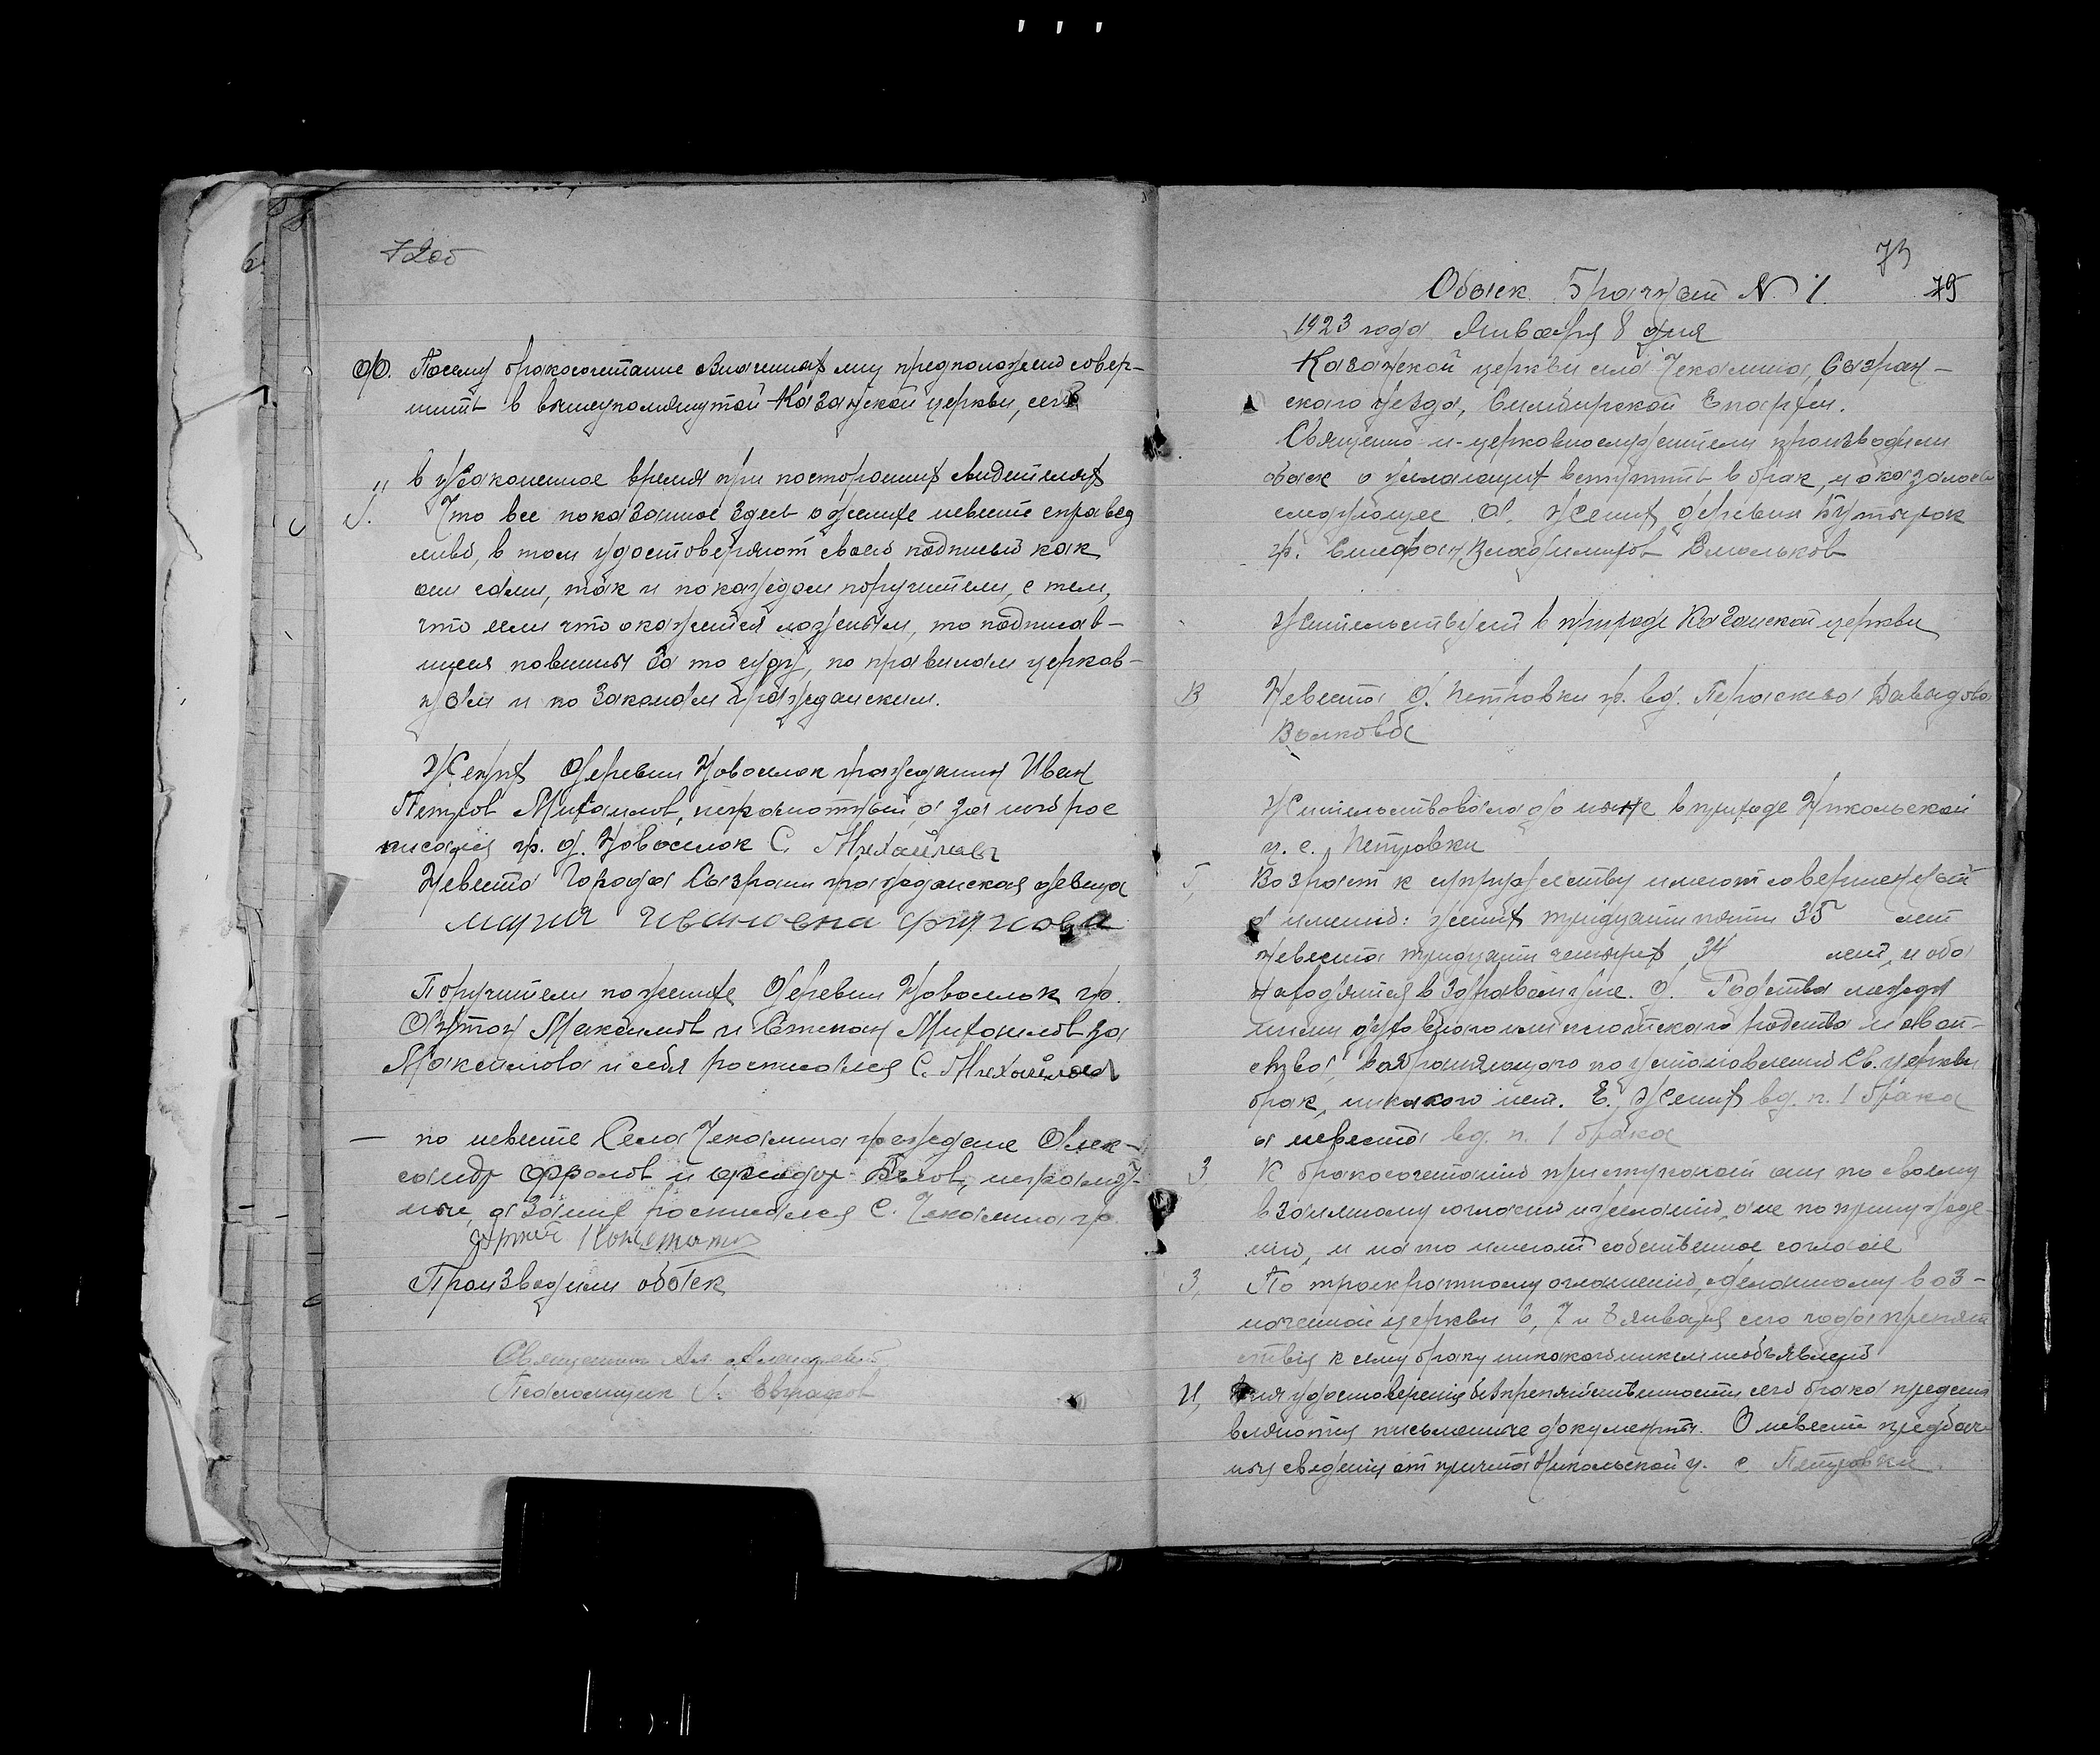 72об
Ф. Посему бракосочетание означенных лиц предположено совер-
шить в вышеупомянутой Казанской церкви, сего
„ в узаконенное время при посторонних свидетелях
I. Что все показанное здесь о женихе невесте справед
ливо, в том удостоверяют своею подписью как
они сами, так и по каждом поручители, с тем,
что если что окажется ложным, то подписав-
шиеся повинны за то суду, по правилам церков-
ным и по законам гражданским.
Жених деревни Новоселок гражданин Иван
Петров Михаилов, неграмотный, а за него рос
писался гр. д. Новоселок С. Михайлов
Невеста Города Сызрани гражданская девица
Мария Ивановна
Поручители по женихе Деревни Новоселок гр.
Антон Максимов и Степан Михаилов за
Максимова и себя росписался С. Михайлов
— по невесте Села Чекалина граждане Алек-
сандр Фролов и Федор неграмот-
ные, а за них росписался С. Чекалина гр.
Производили обыск
Священник Ал.
Псаломщик
73
75
Обыск Брачный N. 1.
1923 года Января 8 дня
Казанской церкви села Чекалина, Сызран-
ского уезда, Симбирской Епархии.
Священно-и-церковнослужители производили
обыск о желающих вступить в брак, и оказалось
следующее. А. Жених деревни Бутырок
гр. Стефан Владимиров Смольков
Жительствует в приходе Казанской церкви
В Невеста д. Петровки гр. вд. Параскева Давыдова
Волкова
Жительствовала до ныне в приходе Никольской
ц. с. Петровки
Г, Возраст к супружеству имеют совершенный
а именно: жених тридцати пяти 35 лет
невеста тридцати четырех 34 лет, и оба
находятся в здравом уме. Д. Родства между
ними духовного или плотского родства и свой-
ства, возбраняющего по установлению Св. церкви
брак, никакого нет. Е. Жених вд. п. 1 брака
а невеста вд. п. 1 брака
З, К бракосочетанию приступают они по своему
взаимному согласию и желанию, а не по принужде-
нию, и на то имеют собственное согласие
З, По троекратному оглашению, сделанному в оз-
наченной церкви 6, 7 и 8 января сего года препят
ствия к сему браку никакого никем не объявлено
И, Для удостоверения безпрепятственности сего брака предста
вляются письменные документы. О невесте предбрач
ныя сведения от причта Никольской ц. с Петровки.